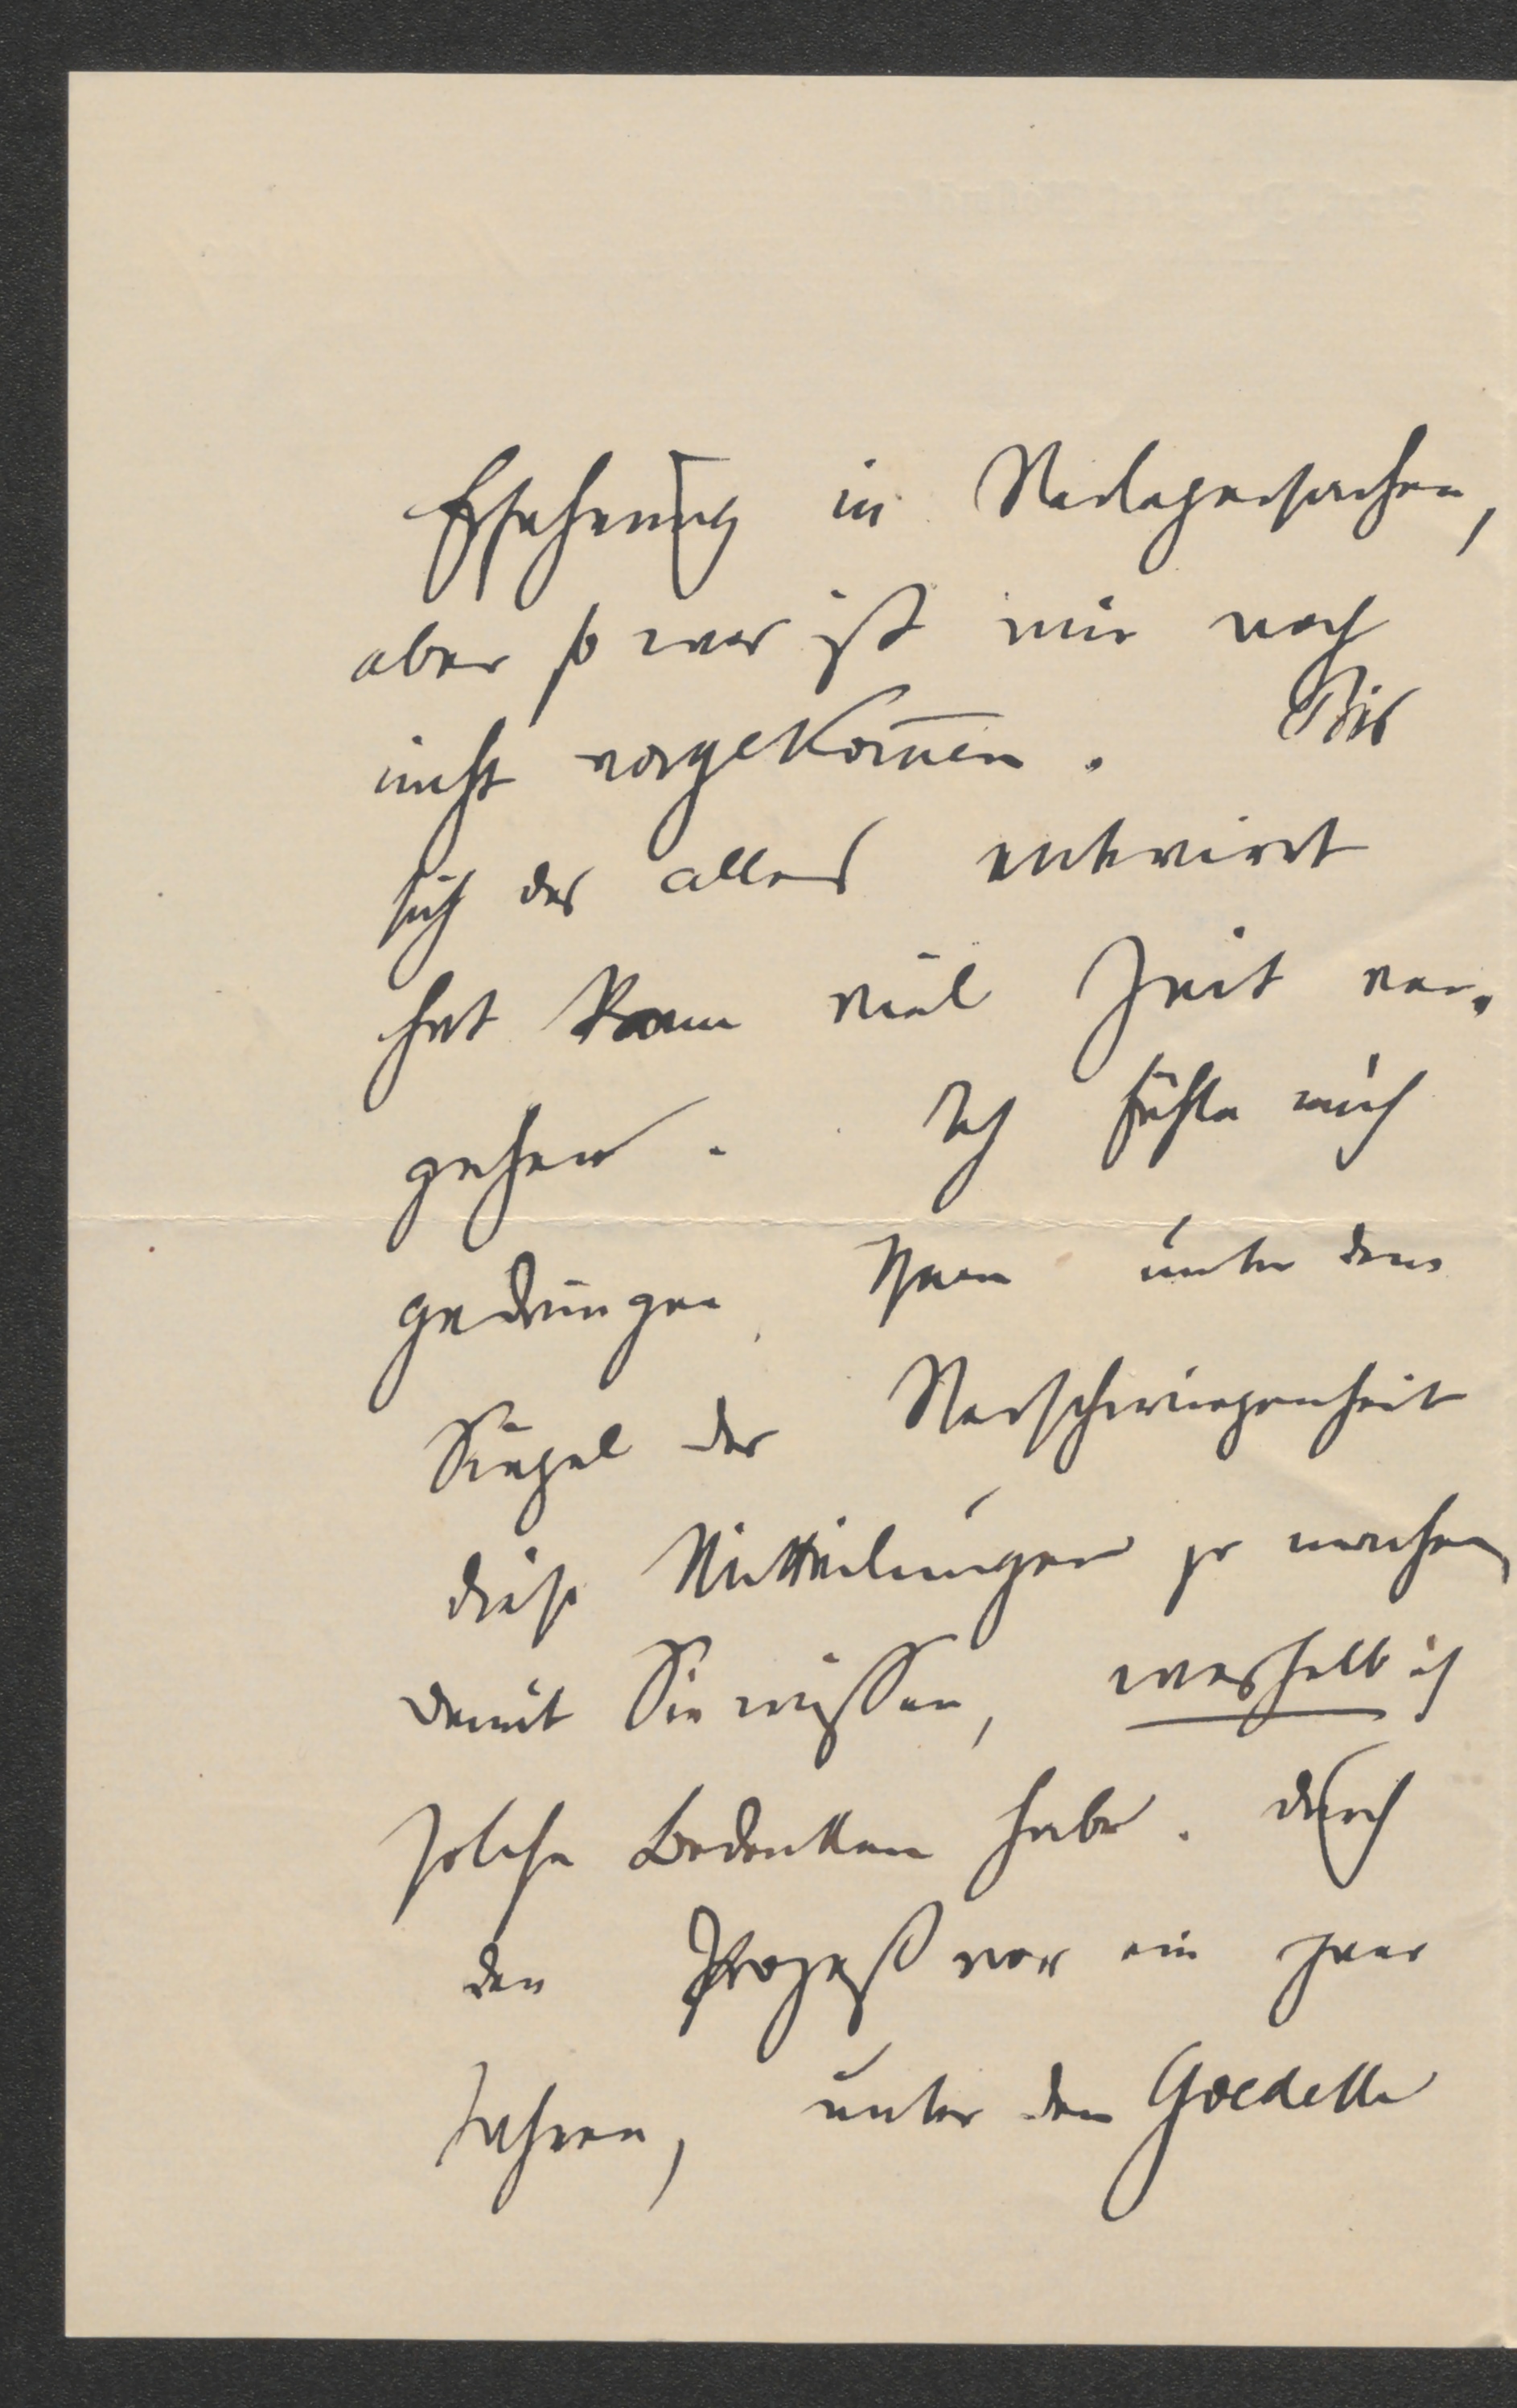 Erfahrung in Verlagssachen,
aber so was ist mir noch
nicht vorgekom̅en. Bis
sich das alles entwirrt
hat kann viel Zeit ver-
gehen. Ich fühle mich
gedrungen Ihnen unter dem
Siegel der Verschwiegenheit
diese Mitteilungen zu machen,
damit Sie wissen, weshalb ich
solche Bedenken habe. Durch
den Prozeß vor ein paar
Jahren, unter dem Goedeke